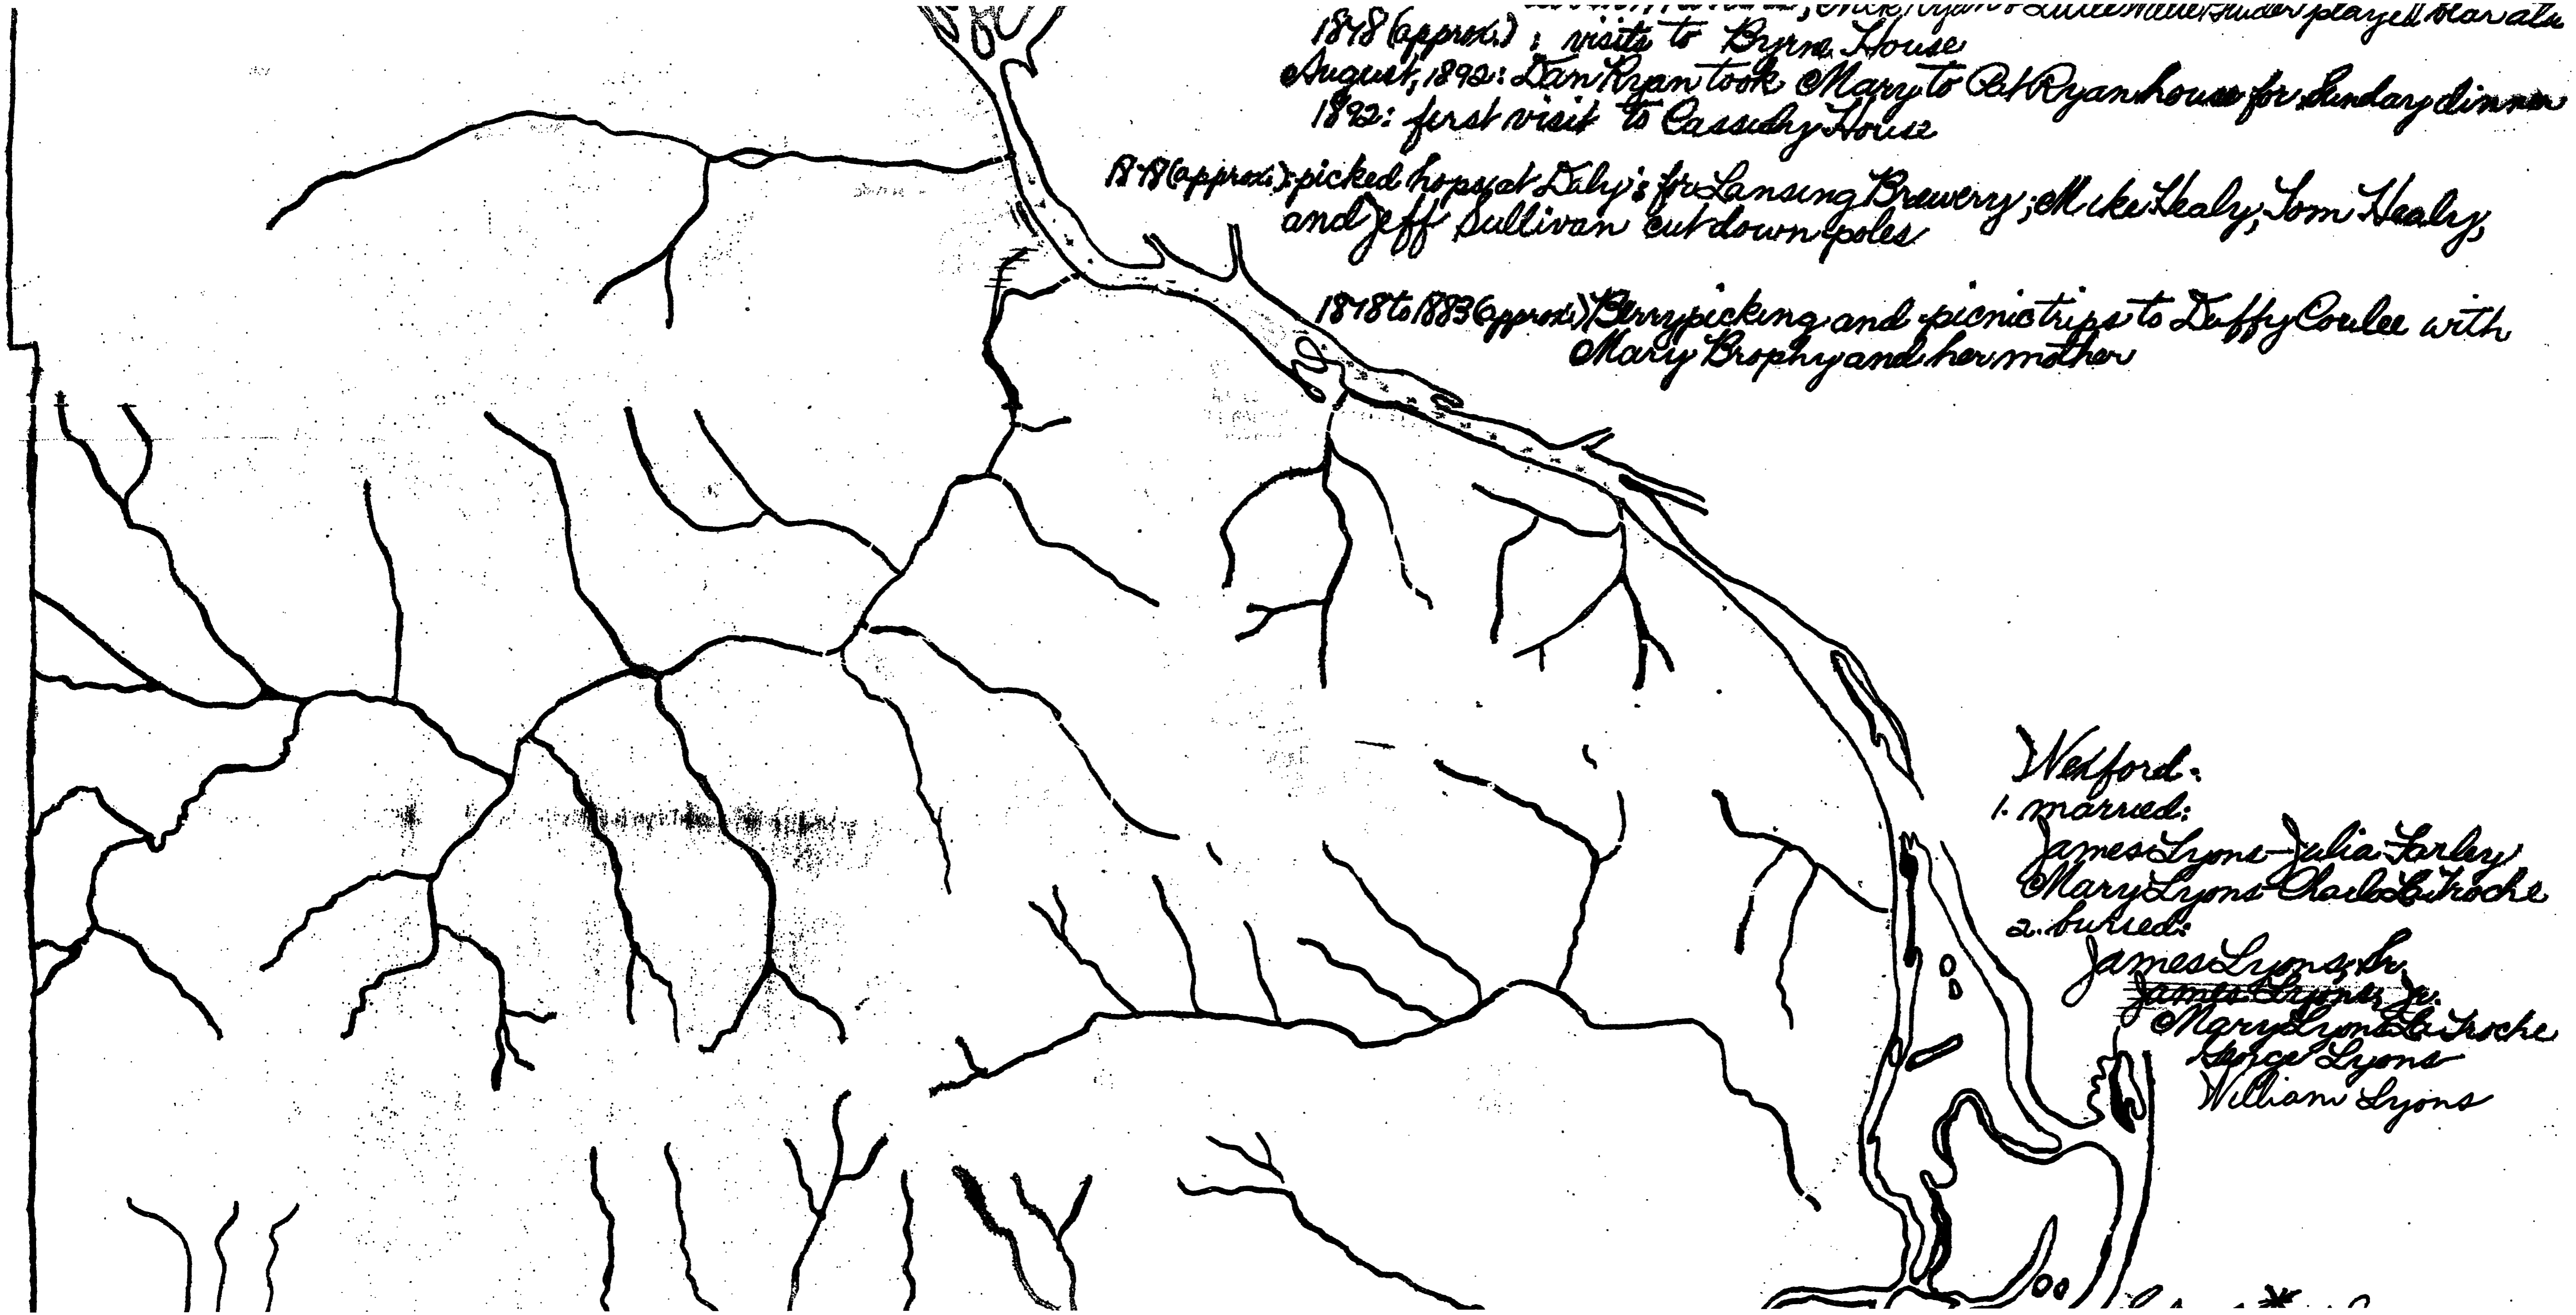 played bear at
1878 (approx.): visits to Byrne House
August, 1892: Dan Ryan took Mary to Pat Ryan house for Sunday dinner
1892: first visit to Cassidy House
1878 (approx.): picked hops at Daly's for Lansing Brewery; Mike Healy, Tom Healy,
and Jeff Sullivan cut down poles
1878 to 1883 (approx.) Berrypicking and picnic trips to Duffy Coulee with
Mary Brophy and her mother
Wexford:
1. married:
James Lyons - Julia Farley
Mary Lyons - Charles LaTroche
2. buried:
James Lyons, Sr.
James Lyons, Jr.
Mary Lyons LaTroche
George Lyons
William Lyons